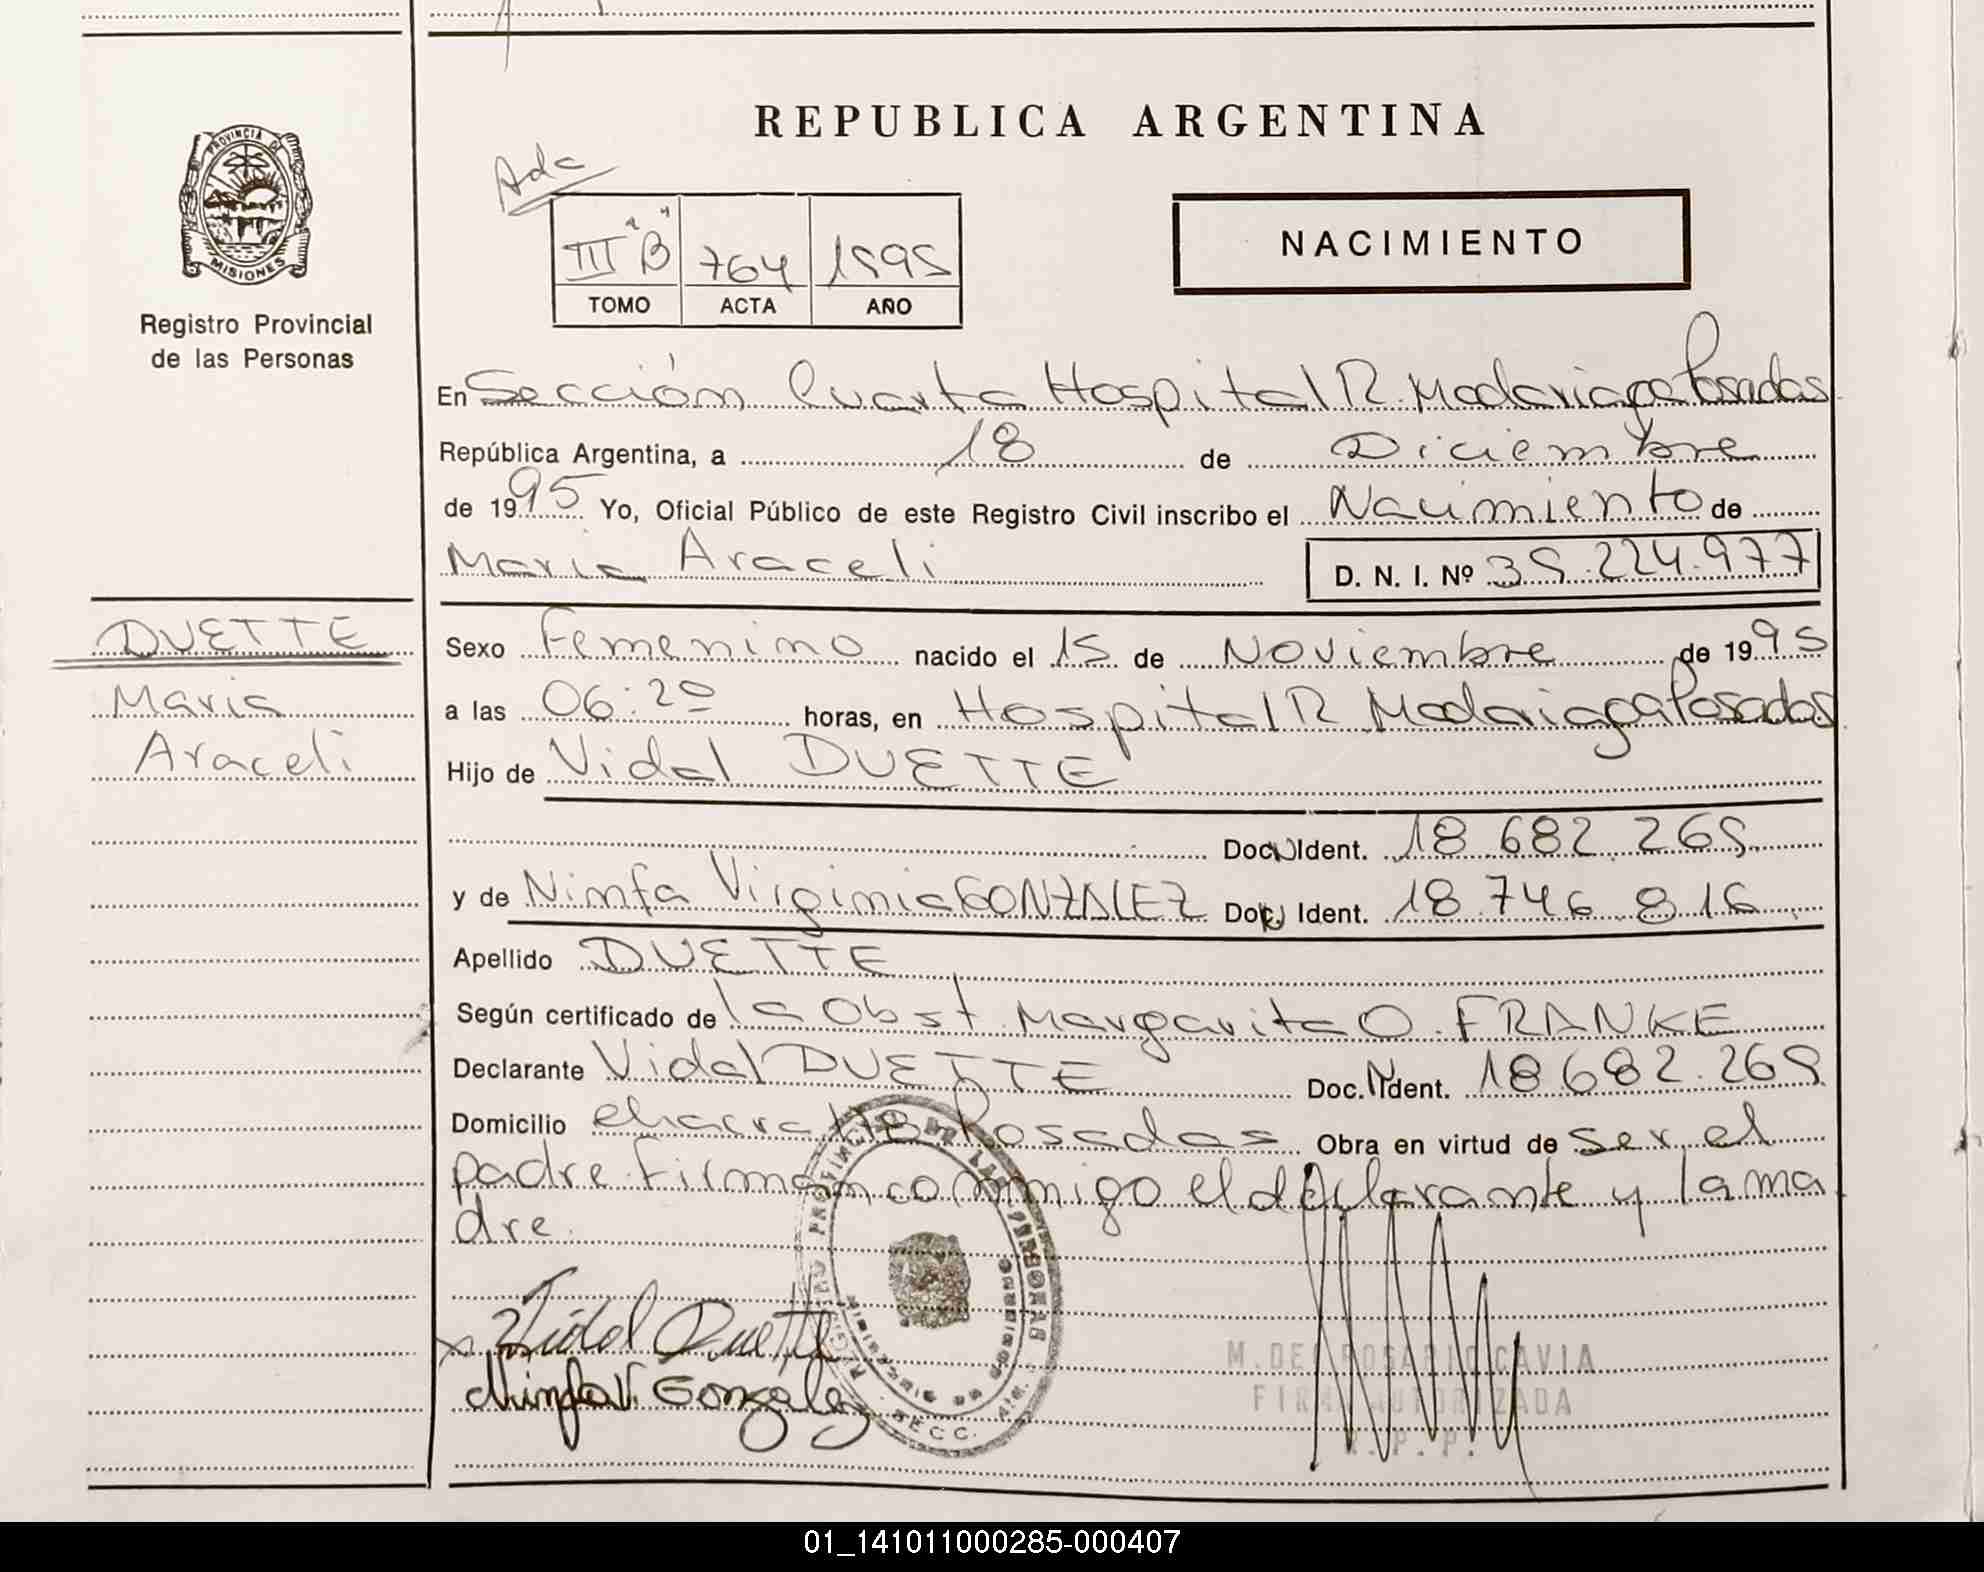 REPUBLICA ARGENTINA
Adc
PROVINCIA DE
MISIONES
Registro Provincial
de las Personas
III "B" 764 1995
TOMO ACTA AÑO
NACIMIENTO
En Sección Cuarta Hospital R. Madariaga Posadas
República Argentina, a 18 de Diciembre
de 1995 Yo, Oficial Público de este Registro Civil inscribo el Nacimiento de
Maria Araceli D. N. I. Nº 39.224.977
DUETTE
Maria
Araceli
Sexo Femenino nacido el 15 de Noviembre de 1995
a las 06:20 horas, en Hospital R Madariaga Posadas
Hijo de Vidal DUETTE
Doc. N Ident. 18.682.269
y de Nimfa Virginia GONZALEZ Doc. N Ident. 18.746.816
Apellido DUETTE
Según certificado de la Obst Margarita O. FRANKE
Declarante Vidal DUETTE Doc. N Ident. 18682.269
Domicilio chacra Posadas Obra en virtud de ser el
padre. Firman conmigo el declarante y la ma
dre.
x Vidal Duette
Ninfa V. Gonzalez
M. DEL ROSARIO CAVIA
FIRMA AUTORIZADA
R. P. P.
01_141011000285-000407